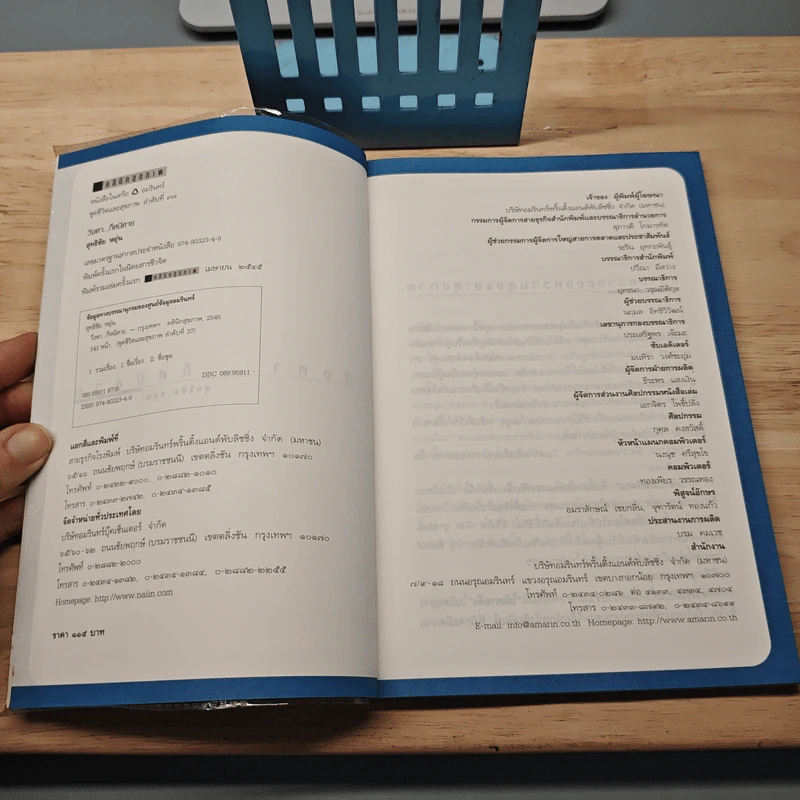 คลินิกสุขภาพ
หนังสือในเครือ อมรินทร์
ชุดชีวิตและสุขภาพ ลำดับที่ ๓๗
วิ่งหา...กัดนิทาย
สุทธิชัย หยุ่น
เลขมาตรฐานสากลประจำหนังสือ 974-90323-4-9
พิมพ์ครั้งแรกในนิตยสารชีวจิต
พิมพ์รวมเล่มครั้งแรก คลินิกสุขภาพ เมษายน ๒๕๔๕
ข้อมูลทางบรรณานุกรมของศูนย์ข้อมูลอมรินทร์
สุทธิชัย หยุ่น
143 หน้า. (ชุดชีวิตและสุขภาพ ลำดับที่ 37)
1. รวมเรื่อง. I. ชื่อเรื่อง. II. ชื่อชุด.
DDC 089.95911
ISBN 974-90323-4-9
แยกสีและพิมพ์ที่
สายธุรกิจโรงพิมพ์ บริษัทอมรินทร์พริ้นติ้งแอนด์พับลิชชิ่ง จำกัด (มหาชน)
๖๕/๑๖ ถนนชัยพฤกษ์ (บรมราชชนนี) เขตตลิ่งชัน กรุงเทพฯ ๑๐๑๗๐
โทรศัพท์ ๐-๒๔๒๒-๙๐๐๐, ๐-๒๘๘๒-๑๐๑๐
โทรสาร ๐-๒๔๓๓-๒๗๔๒, ๐-๒๔๓๔-๑๓๘๕
จัดจำหน่ายทั่วประเทศโดย
บริษัทอมรินทร์บุ๊คเซ็นเตอร์ จำกัด
๖๕/๖๐-๖๒ ถนนชัยพฤกษ์ (บรมราชชนนี) เขตตลิ่งชัน กรุงเทพฯ ๑๐๑๗๐
โทรศัพท์ ๐-๒๘๘๒-๒๐๐๐
โทรสาร ๐-๒๔๓๔-๑๓๘๒, ๐-๒๔๓๔-๑๓๘๔, ๐-๒๘๘๒-๒๒๕๕
Homepage: http://www.naiin.com
ราคา ๑๑๕ บาท
เจ้าของ ผู้พิมพ์ผู้โฆษณา
บริษัทอมรินทร์พริ้นติ้งแอนด์พับลิชชิ่ง จำกัด (มหาชน)
กรรมการผู้จัดการสายธุรกิจสำนักพิมพ์และบรรณาธิการอำนวยการ
สุภาวดี โกมารทัต
ผู้ช่วยกรรมการผู้จัดการใหญ่สายการตลาดและประชาสัมพันธ์
ระริน อุทกะพันธุ์
บรรณาธิการสำนักพิมพ์
ปวีณา มีสว่าง
บรรณาธิการ
ผู้ช่วยบรรณาธิการ
นฤมล อิทธิวิวัฒน์
เลขานุการกองบรรณาธิการ
ประเสริฐพร เจ๊ะมะ
ซับเอดิเตอร์
มนทิรา วงศ์ชะอุ่ม
ผู้จัดการฝ่ายการผลิต
ธีระพร แสงนิน
ผู้จัดการส่วนงานศิลปกรรมหนังสือเล่ม
เอกจิตร โพธิ์ปลั่ง
ศิลปกรรม
กุศล คงสวัสดิ์
หัวหน้าแผนกคอมพิวเตอร์
นงนุช ศรีสุขโข
คอมพิวเตอร์
ทองเพียว วรรณทอง
พิสูจน์อักษร
อมราลักษณ์ เชยกลิ่น, จุฑารัตน์ ทองแก้ว
ประสานงานการผลิต
บรม คมเวช
สำนักงาน
บริษัทอมรินทร์พริ้นติ้งแอนด์พับลิชชิ่ง จำกัด (มหาชน)
๗/๙-๑๘ ถนนอรุณอมรินทร์ แขวงอรุณอมรินทร์ เขตบางกอกน้อย กรุงเทพฯ ๑๐๗๐๐
โทรศัพท์ ๐-๒๔๓๔-๐๒๘๖ ต่อ ๔๑๓๓, ๔๓๓๔, ๔๗๐๔
โทรสาร ๐-๒๔๓๓-๘๗๙๒, ๐-๒๔๓๔-๘๐๙๙
E-mail: info@amarin.co.th Homepage: http://www.amarin.co.th